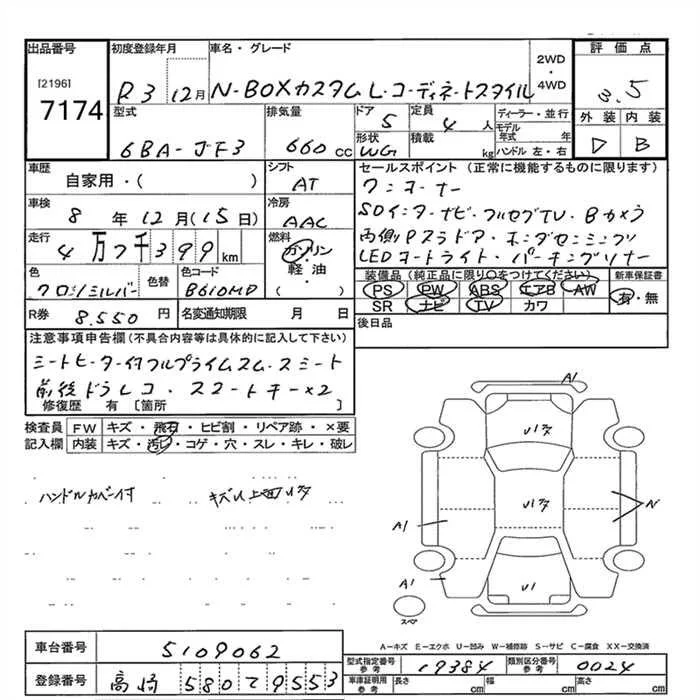 出品番号
[2196]
7174
初度登録年月
R3 12月
車名・グレード
N-BOXカスタム L・コーディネートスタイル
2WD
・
4WD
評価点
3.5
外装 内装
D B
型式
6BA-JF3
排気量
660 cc
ドア
5
定員
4 人
形状
WG
積載
kg
ディーラー・並行
モデル年式 年
ハンドル 左・右
車歴
自家用・( )
シフト
AT
車検
8 年 12 月(15 日)
冷房
AAC
走行
4 万 7 千 399 km
燃料
ガソリン
・
軽・油
( )
色
クロ/シルバー
色替
色コード
B610MD
R券 8.550 円
名変通知期限 月 日
セールスポイント(正常に機能するものに限ります)
ワンオーナー
SDインターナビ・フルセグTV・Bカメラ
両側Pスラドア・ホンダセンシング
LEDオートライト・パーキングソナー
装備品(純正品に限り○をつけてください)
PS PW ABS エアB AW
SR ナビ TV カワ
新車保証書
有・無
後日品
注意事項申告欄(不具合内容等は具体的に記入して下さい)
シートヒーター付フルプライムスム・スシート
前後ドラレコ・スマートキー×2
修復歴 有 [箇所 ]
検査員
記入欄
FW キズ・飛石・ヒビ割・リペア跡・×要
内装 キズ・汚レ・コゲ・穴・スレ・キレ・破レ
ハンドルカバー付
A1
U1
N
A1
A1
スペア
A-キズ E-エクボ U-凹ミ W-補修跡 S-サビ C-腐食 XX-交換済
車台番号 5109062
登録番号 高崎 580 て 9553
型式指定番号
参考
19384
類別区分番号
参考
0024
車庫証明用
参考
長さ cm 幅 cm 高さ cm